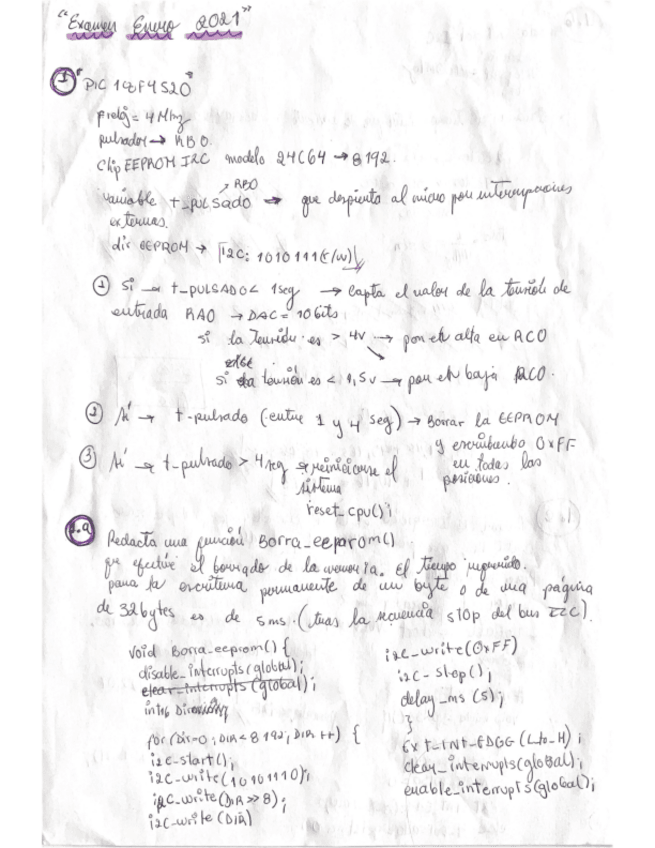 "Examen Enero 2021"
1 "PIC 18F4520"
freloj = 4 Mhz
pulsador → RB0.
Chip EEPROM I2C modelo 24C64 → 8192.
↗ RB0
variable t_PULSADO → que despierta al micro por interrupciones
externas.
dir EEPROM → I2C: 1010111(r/w)
① Si → t_PULSADO < 1seg → capta el valor de la tensión de
entrada RA0 → DAC = 10 bits
si la tensión es > 4v → pon en alta en RC0
else
si la tensión es < 1,5v → pon en baja RC0.
② Si → t-pulsado (entre 1 y 4 seg) → Borrar la EEPROM
y escribiendo 0xFF
en todas las
posiciones.
③ Si → t-pulsado > 4 seg → reiniciarse el
sistema
reset_cpu();
1.a Redacta una función Borra_eeprom()
que efectúe el borrado de la memoria. El tiempo requerido
para la escritura permanente de un byte o de una página
de 32 bytes es de 5 ms. (tras la secuencia STOP del bus I2C).
void Borra_eeprom() {
disable_interrupts(global);
clear_interrupts(global);
int16
for (Dir=0; DIR < 8192; DIR ++) {
i2c-start();
i2c-write(10101110);
i2c-write(DIR >> 8);
i2c-write(DIR)
i2c-write(0xFF)
i2c-stop();
delay_ms (5);
}
Ext-INT-EDGG (L_to_H);
clear_interrupts(global);
enable_interrupts(global);